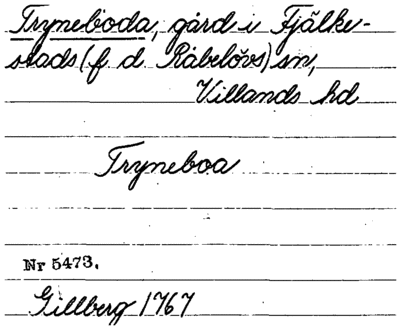 Tryneboda, gård i Fjälke-
stads (f d Råbelövs) sn,
Villands hd
Tryneboa
Nr 5473.
Gillberg 1767